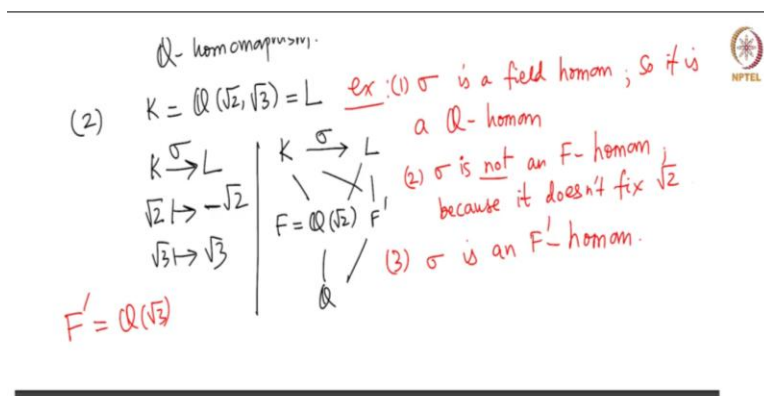 Q-homomorphism.
(2) K = Q(√2, √3) = L
K →σ L
√2 ↦ -√2
√3 ↦ √3
F' = Q(√3)
K →σ L
F = Q(√2) F'
Q
ex: (1) σ is a field homom ; So it is
a Q-homom
(2) σ is not an F-homom ;
because it doesn't fix √2
(3) σ is an F'-homom.
NPTEL